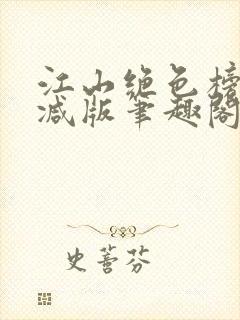 江山绝色榜
减版笔趣阁
史蓍芬